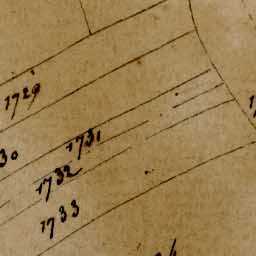 1729
30
1731
1732
1733